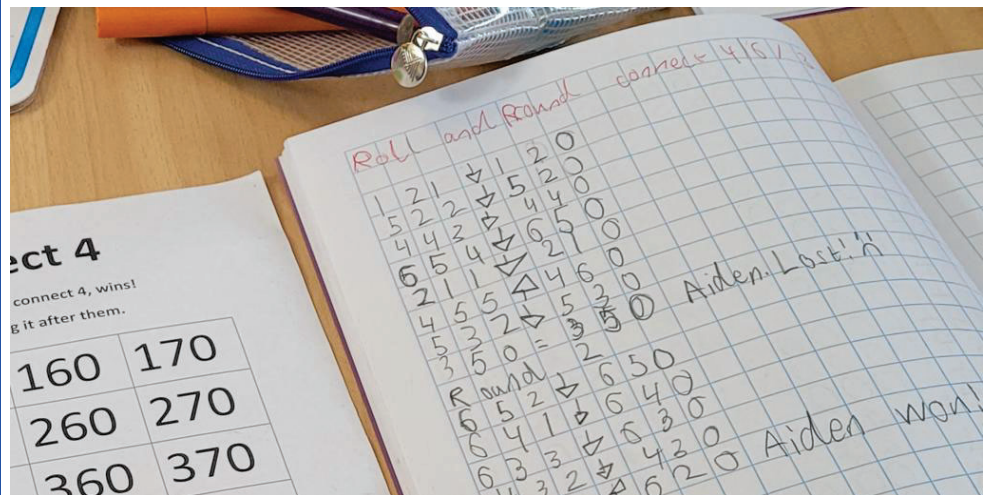 ect 4
connect 4, wins!
g it after them.
160 170
260 270
360 370
Roll and Round connect 4/5/
121 ↓ 120
522 ↓ 520
443 ↓ 440
654 ↓ 650
211 ↓ 210
455 ↑ 460
532 ↓ 530
350 = 350 Aiden. Lost!
Round 2
652 ↓ 650
641 ↓ 640
633 ↓ 630
32 ↓ 430
↑ 620 Aiden won!